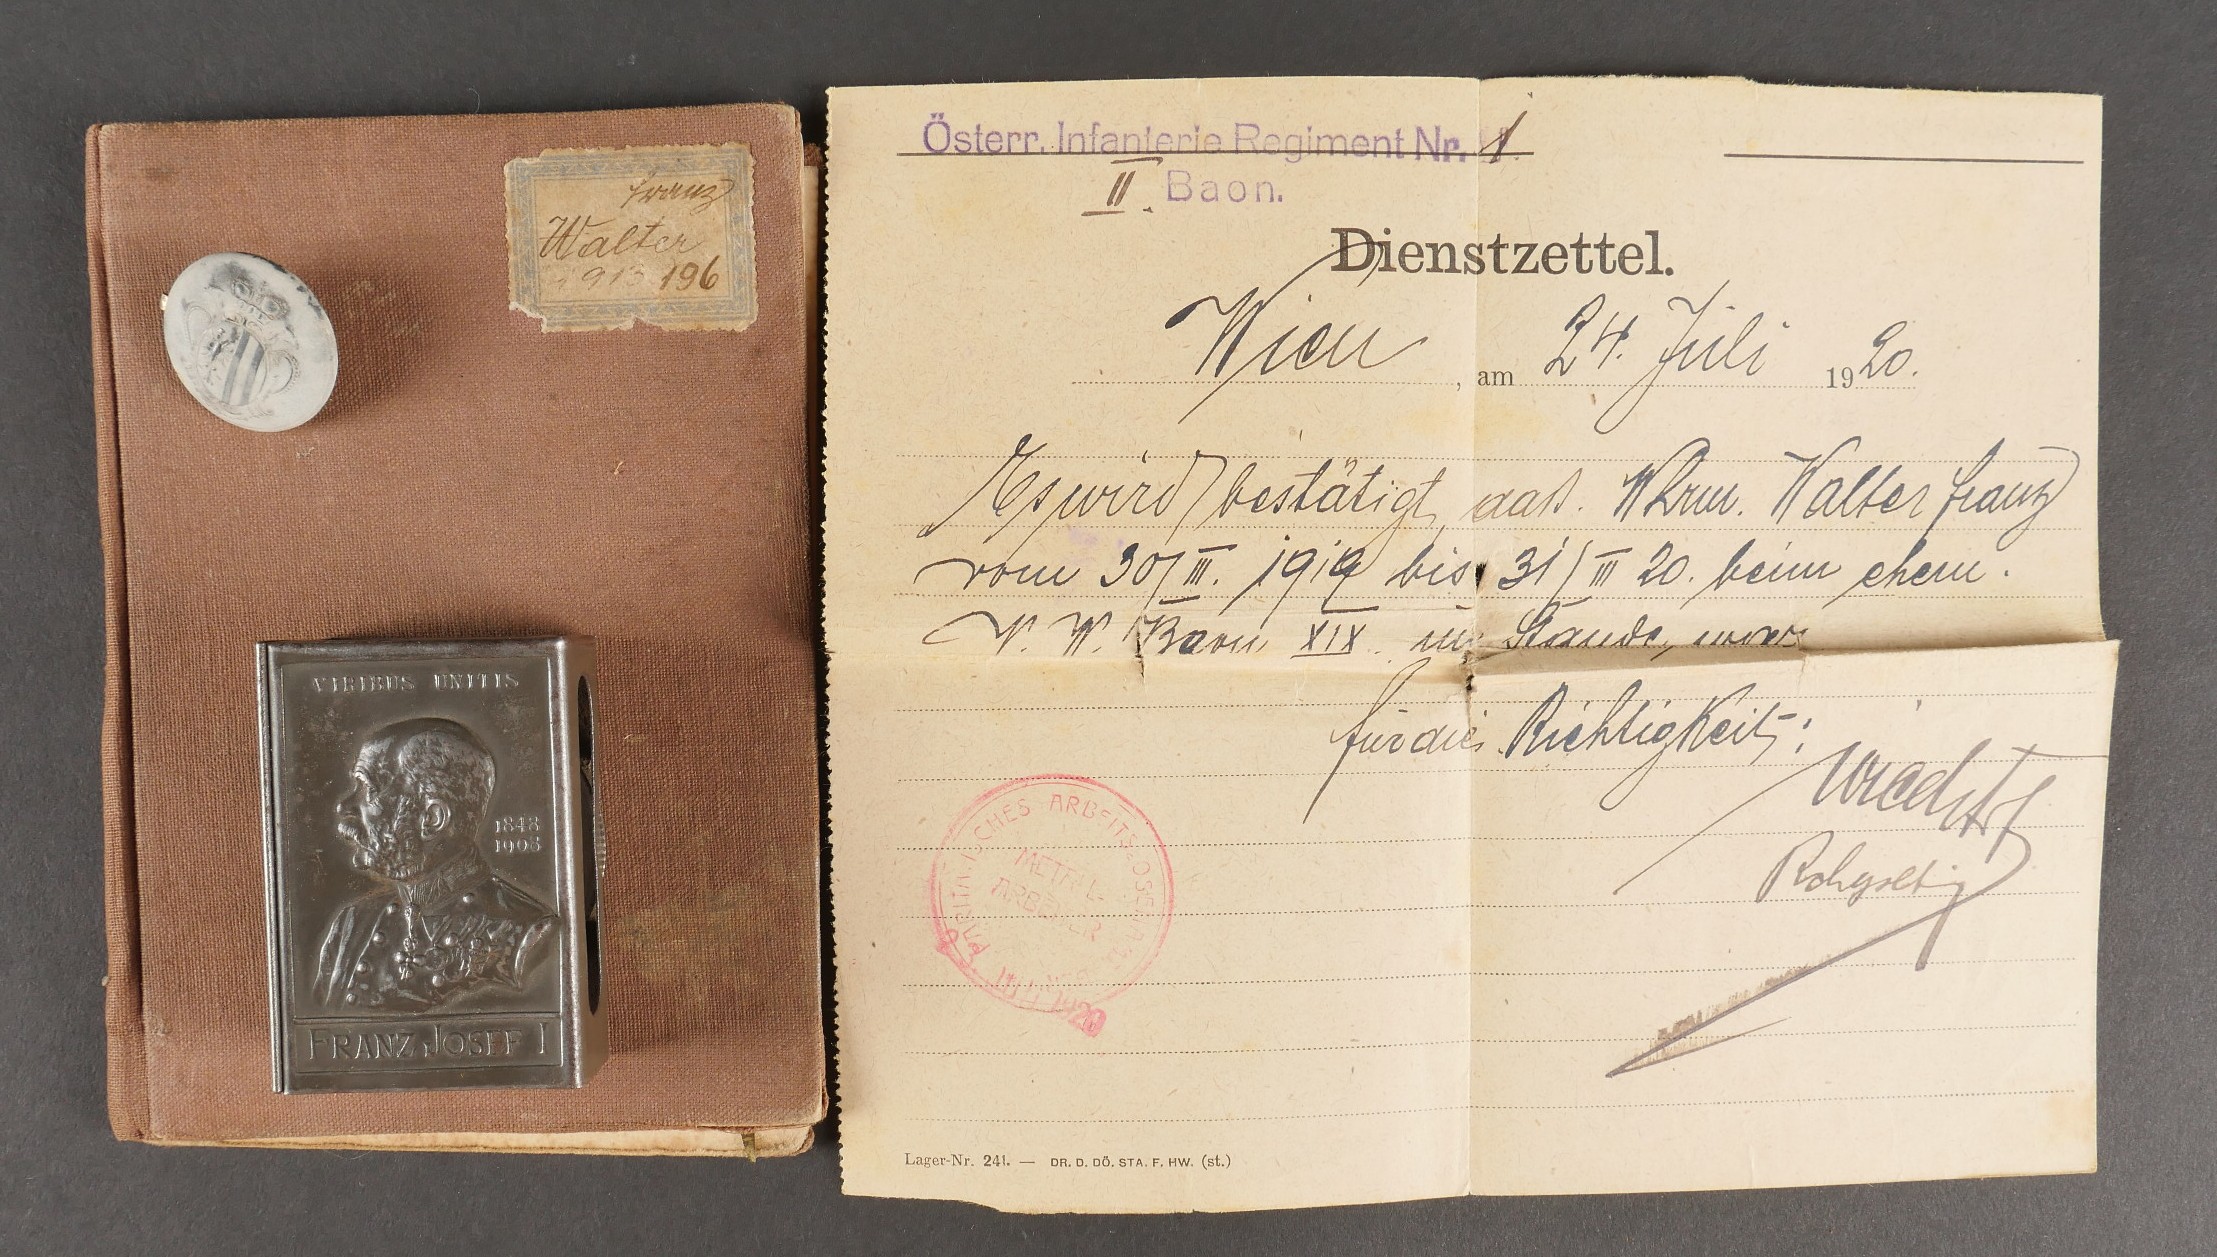 Franz
Walter
1913 196
VIRIBUS UNITIS
1848
1908
FRANZ JOSEF I
Österr. Infanterie Regiment Nr. 1.
II. Baon.
Dienstzettel.
Wien, am 24. Juli 1920.
Es wird bestätigt, daß. Wkrm. Walter Franz
vom 30/III. 1919 bis 31/III 20. beim ehem.
V. W. Baon XIX im Stande, war
für die Richtigkeit:
PARITÄTISCHES ARBEITSLOSENAMT
METALL-
ARBEITER
1920
Lager-Nr. 241. — DR. D. DÖ. STA. F. HW. (st.)